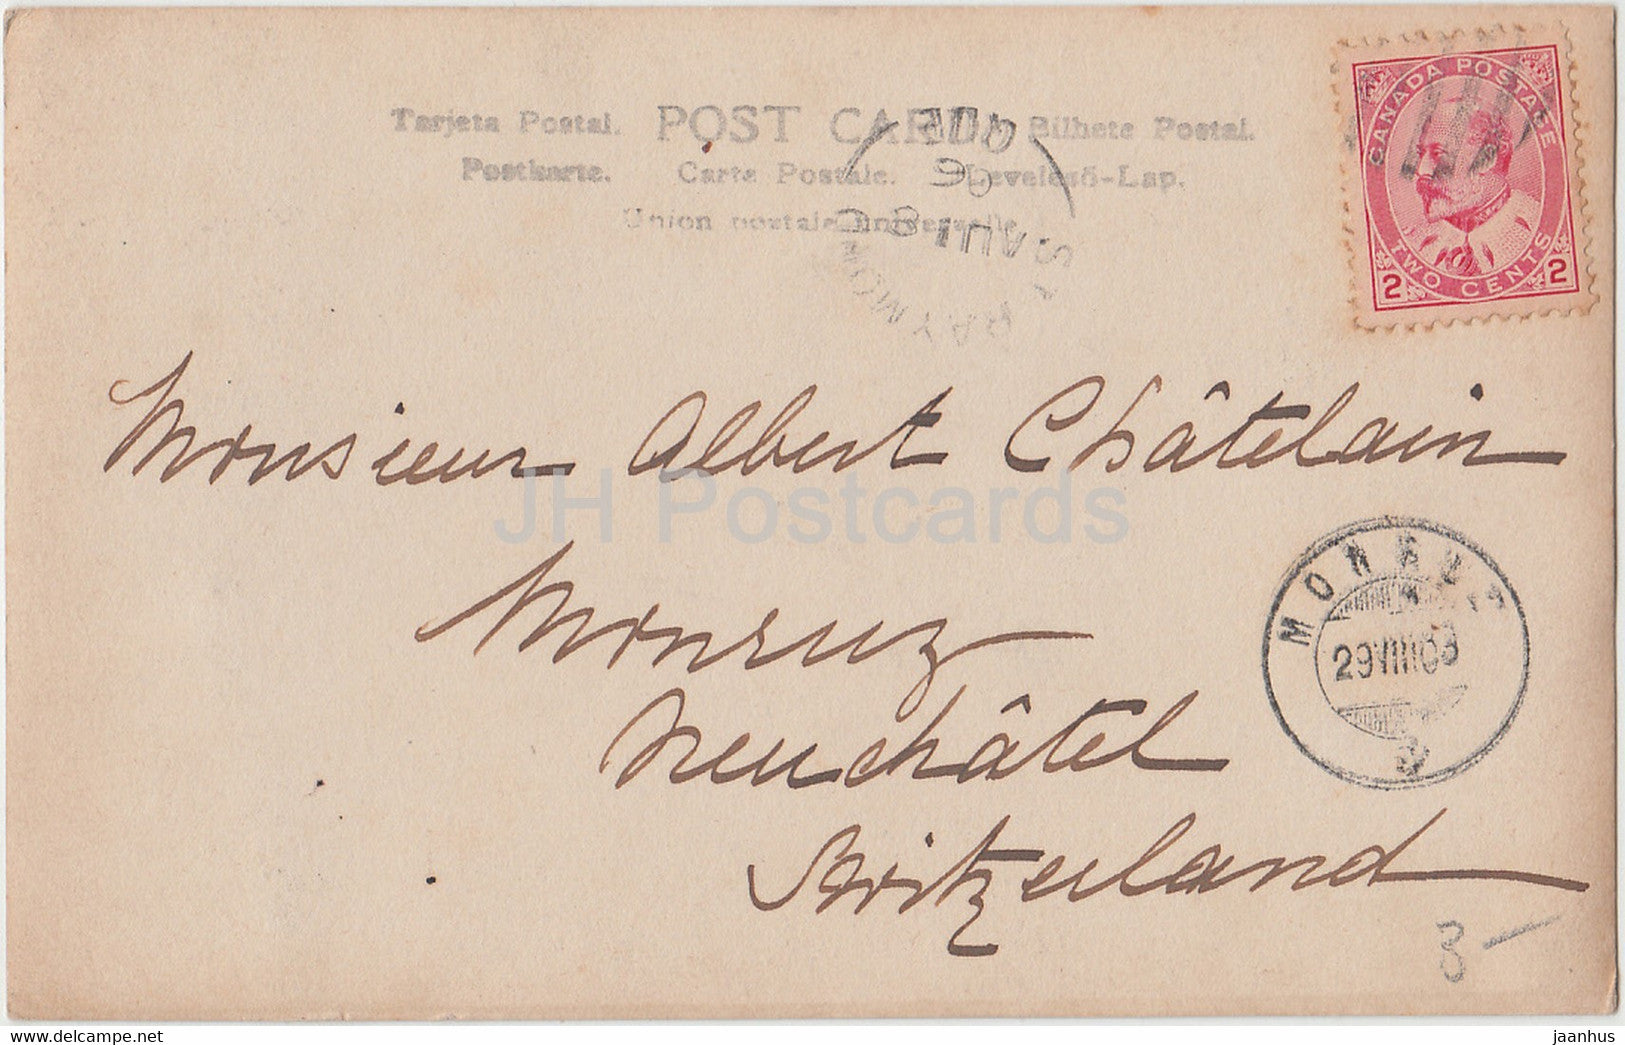 Tarjeta Postal. POST CARD Bilhete Postal.
Postkarte. Carte Postale. Levelező-Lap.
Union postale universelle
CANADA POSTAGE
TWO CENTS
2 2
ST RAYMOND
AU
Monsieur Albert Châtelain
JH Postcards
Monruz
Neuchâtel
Switzerland
MONRUZ
29 VIII 08
3 –
jaanhus